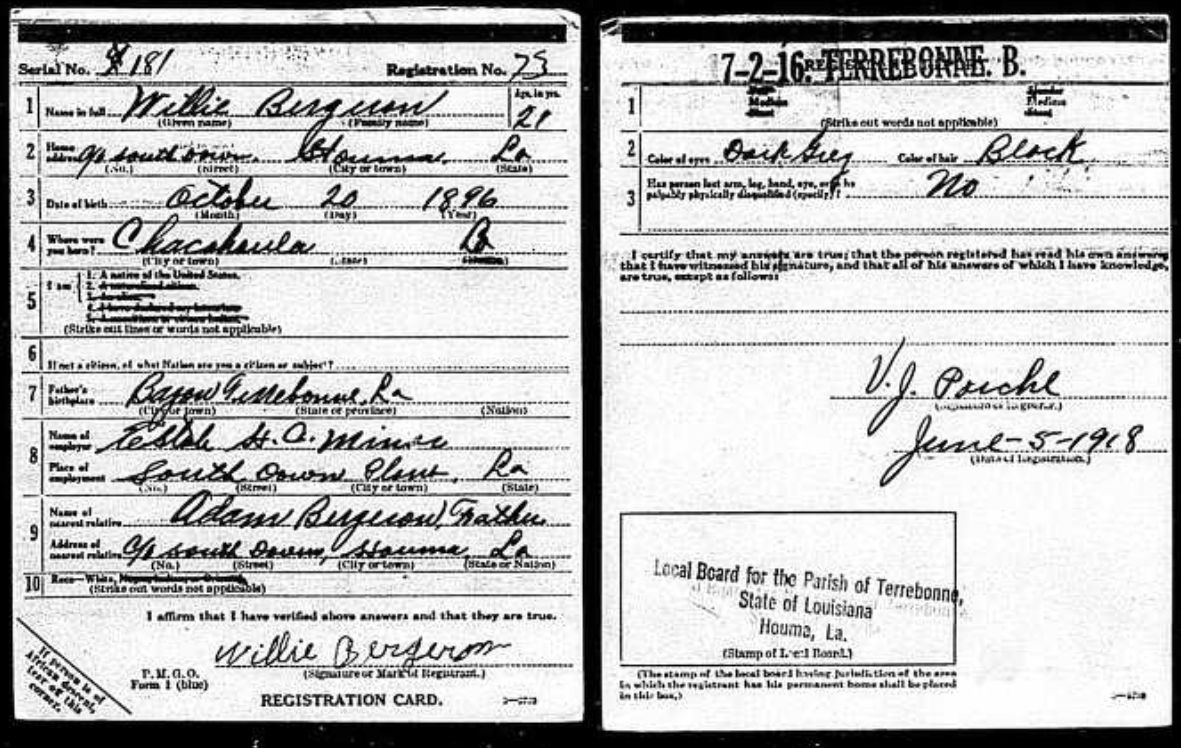 Serial No. 181 Registration No. 73
1 Name in full Willie Bergeron Age, in yrs. 21
(Given name) (Family name)
2 Home address c/o south down Houma La
(No.) (Street) (City or town) (State)
3 Date of birth October 20 1896
(Month) (Day) (Year)
4 Where were you born? Chacahoula La
(City or town) (State) (Nation)
5 I am 1. A native of the United States.
2. A naturalized citizen.
3. An alien.
4. I have declared my intention
5.
(Strike out lines or words not applicable)
6 If not a citizen, of what Nation are you a citizen or subject?
7 Father's birthplace Bayou Terrebonne, La
(City or town) (State or province) (Nation)
8 Name of employer Estate H. C. Minor
Place of employment South Down Plant, La
(No.) (Street) (City or town) (State)
9 Name of nearest relative Adam Bergeron, Father
Address of nearest relative c/o south Down, Houma, La
(No.) (Street) (City or town) (State or Nation)
10 Race—White,
(Strike out words not applicable)
I affirm that I have verified above answers and that they are true.
Willie Bergeron
P. M. G. O.
Form 1 (blue)
(Signature or Mark of Registrant.)
REGISTRATION CARD.
If person is of
African descent,
tear off this
corner.
7-2-16. TERREBONNE. B.
1 Tall Slender
Medium Medium
Short Stout
(Strike out words not applicable)
2 Color of eyes Dark Grey Color of hair Black
3 Has person lost arm, leg, hand, eye, or is he
palpably physically disqualified (specify)? No
I certify that my answers are true; that the person registered has read his own answers,
that I have witnessed his signature, and that all of his answers of which I have knowledge,
are true, except as follows:
V. J.
(Signature of Registrar.)
June-5-1918
(Date of Registration.)
Local Board for the Parish of Terrebonne,
State of Louisiana
Houma, La.
(Stamp of Local Board.)
(The stamp of the local board having jurisdiction of the area
in which the registrant has his permanent home shall be placed
in this box.)